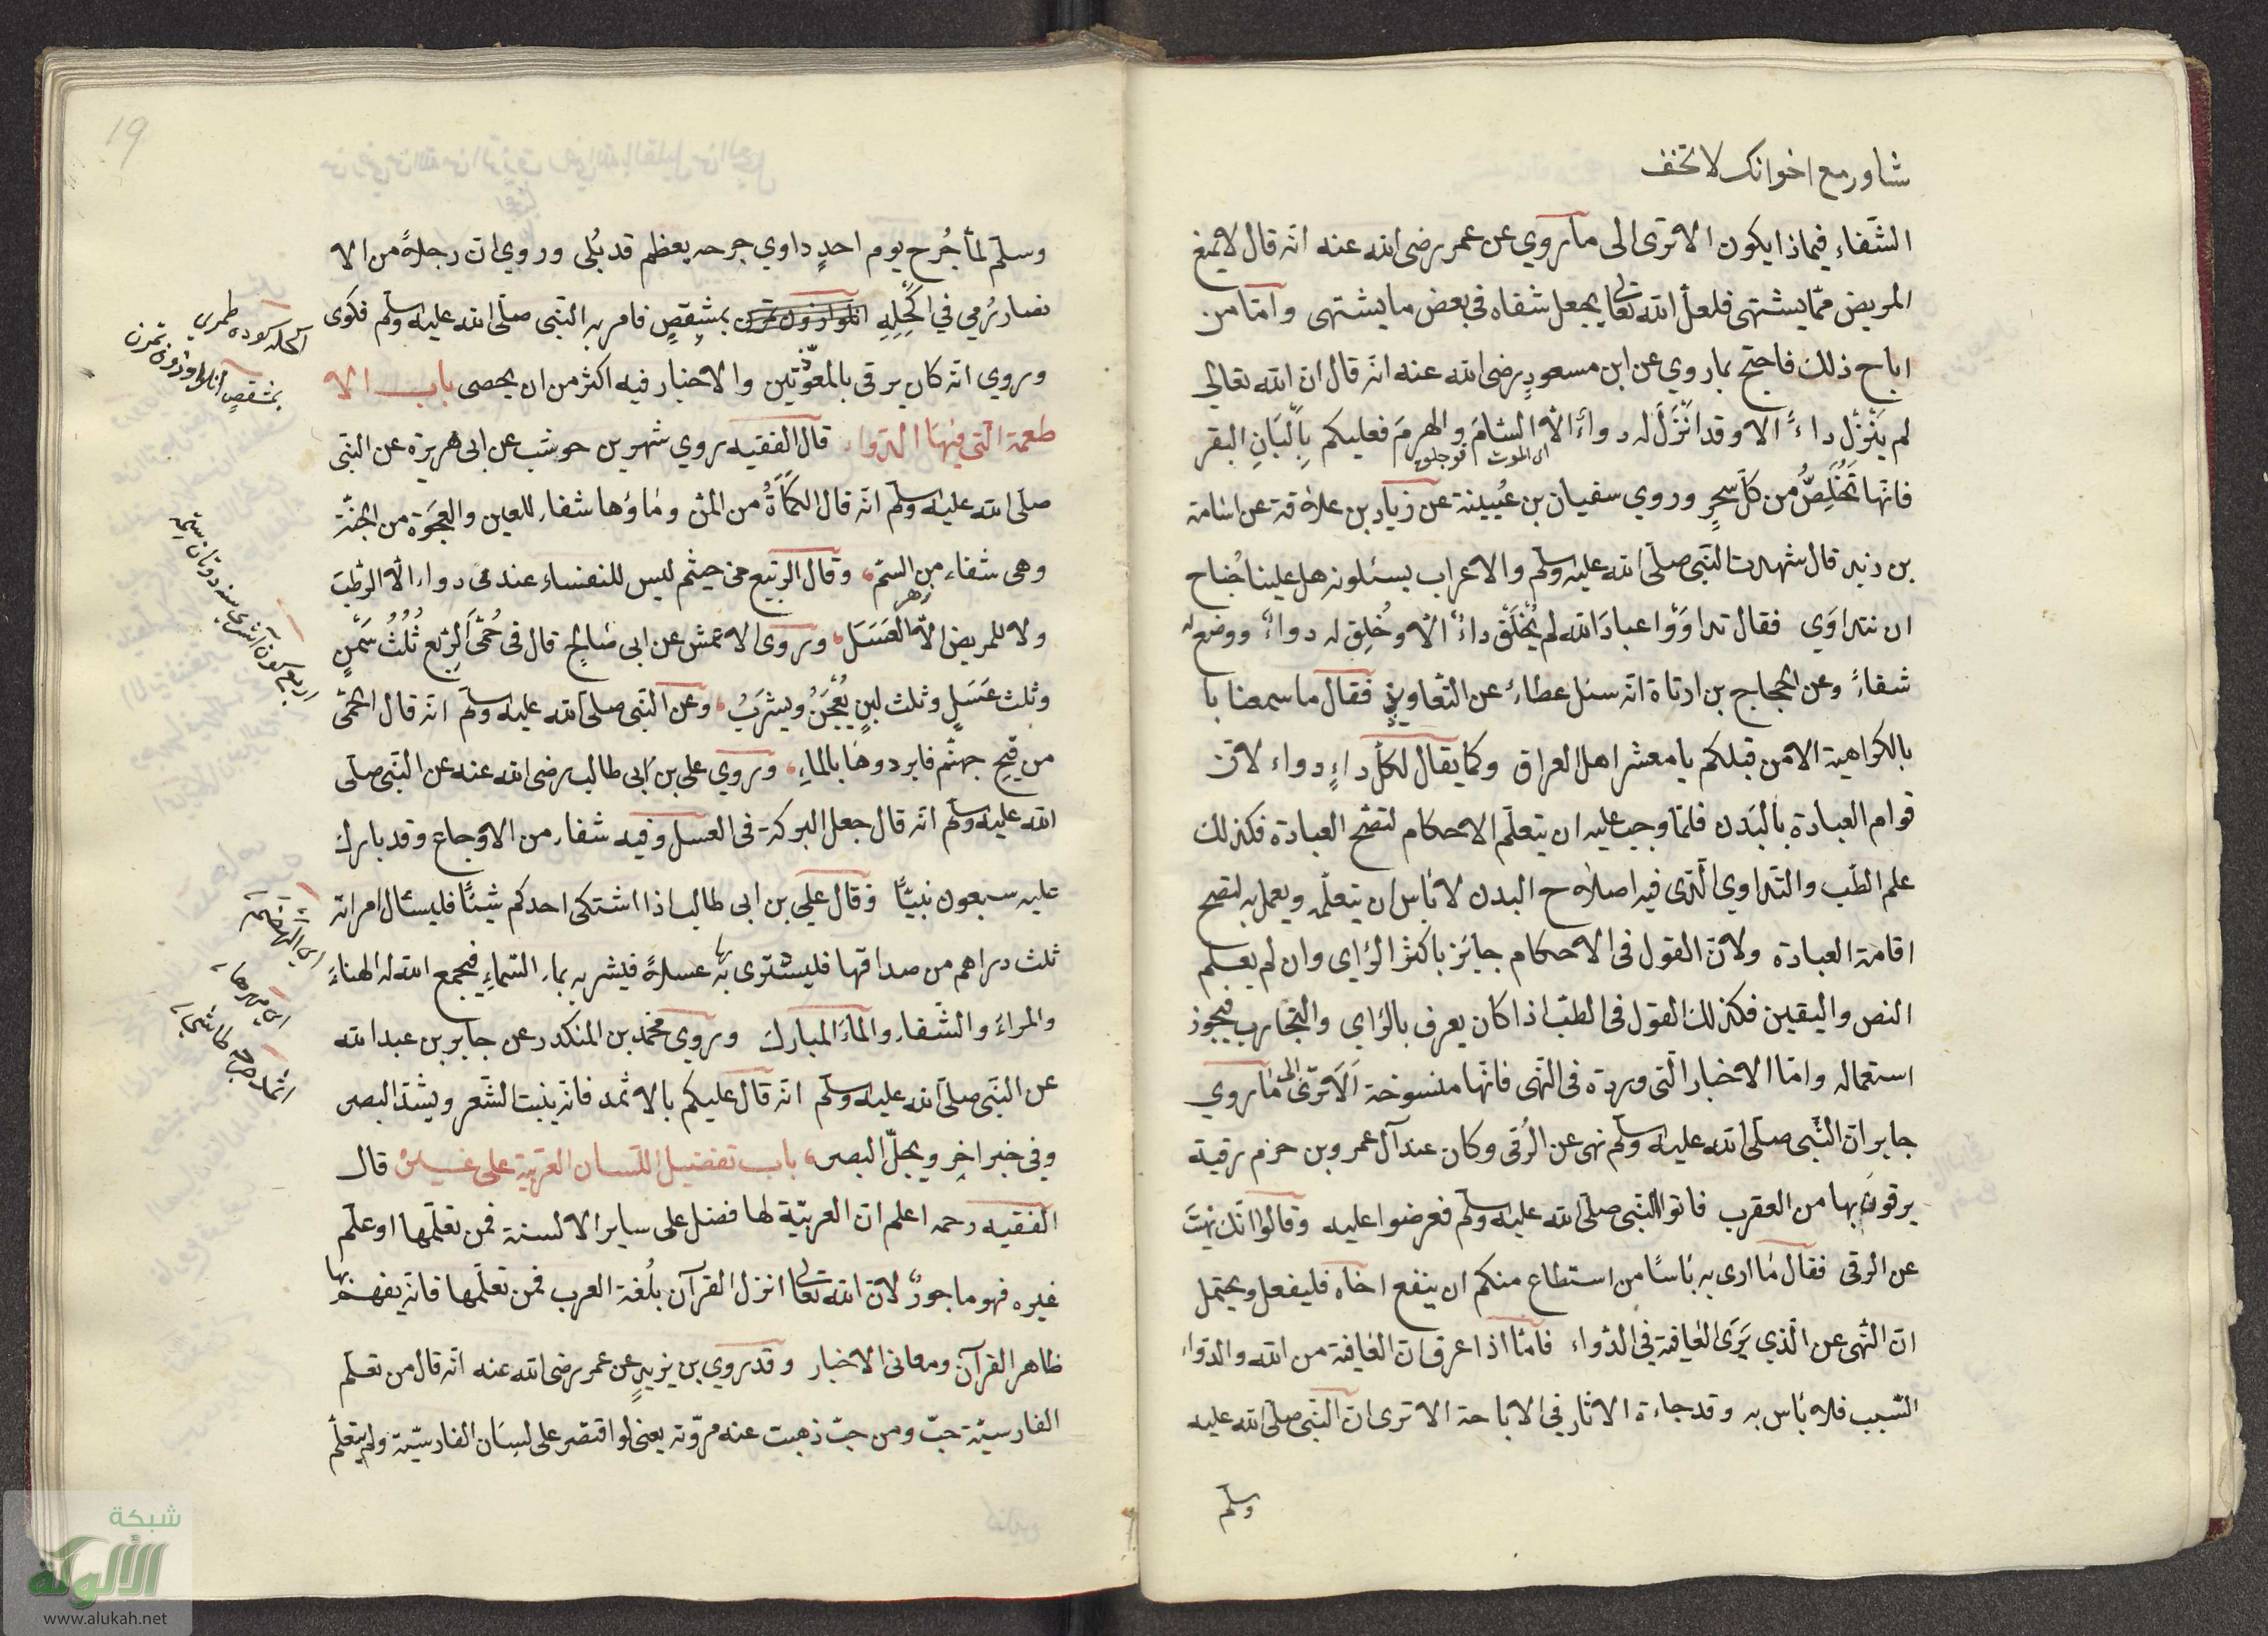 شاور مع اخوانك لا تخف
الشفاء فيماذا يكون الا ترى الى ما روي عن عمر رضى الله عنه انه قال لا يمنع
المريض مما يشتهى فلعل الله تعالى يجعل شفاه في بعض ما يشتهى واما من
اباح ذلك فاحتج بما روي عن ابن مسعود رضى الله عنه انه قال ان الله تعالى
لم يَنْزِل داءً الا وقد اَنْزَلَ له دواءً الا السَّامَ والهرمَ فعليكم بِاَلْبَانِ البقر
اى الموت قوجلق
فانها تَخْلُصُ من كل سحرٍ وروي سفيان بن عُيينة عن زياد بن علاقة عن اسامة
بن زيد قال شهدت النبى صلى الله عليه وسلم والاعراب يسئلونه هل علينا جُناح
ان نتداوَى فقال تداوَوْا عبادَ الله لم يُخْلَقْ داءٌ الا وخُلِق له دواءٌ ووضع له
شفاءً وعن الحجاج بن ارتاة انه سئل عطاء عن التعاويذ فقال ما سمعنا با
بالكراهية الا من قبلكم يا معشر اهل العراق وكما يقال لكل داءٍ دواء لان
قوام العبادة بالبَدَن فلما وجب عليه ان يتعلم الاحكام لتصح العبادة فكذلك
علم الطب والتداوي الذى فيه اصلاح البدن لا بأس ان يتعلمه ويعمل به لتصح
اقامة العبادة ولان القول فى الاحكام جايز باكثر الرأي وان لم يعلم
النص واليقين فكذلك القول فى الطب اذا كان يعرف بالرأي والتجارب فيجوز
استعماله واما الاخبار التى وردة فى النهى فانها منسوخة اَلَا ترى الى ما روي
جابر ان النبى صلى الله عليه وسلم نهى عن الرُقى وكان عند آل عمرو بن حزم رقية
يرقون بها من العقرب فاتوا النبى صلى الله عليه وسلم فعرضوا عليه وقالوا انك نهيتَ
عن الرقى فقال ما ارى به بأسًا من استطاع منكم ان ينفع اخاه فليفعل ويحتمل
ان النهى عن الذي يَرَى العافية فِي الدواء فاما اذا عرف ان العافية من الله والدواء
السبب فلا بأس به وقد جاءة الاثار في الاباحة الا ترى ان النبى صلى الله عليه
وسلم
19
وسلم لما جُرح يوم احدٍ داوي جرحه بعظم قد بُلى وروي ان رجلاً من الا
نصار رُمي في اَكْحَلِهِ بمِشْقِصٍ فامر به النبى صلى الله عليه وسلم فكوى
وروي انه كان يرقى بالمعوّذتين والاخبار فيه اكثر من ان يحصى باب الا
طعمة التى فيها الدواء قال الفقيه روي شهر بن حوشب عن ابى هريرة عن النبى
صلى الله عليه وسلم انه قال الكَمَأةُ من المن وماؤها شفاء للعين والعجوَة من الجنة
وهى شفاء من السمّ وقال الربيع بن خيثم ليس للنفساء عندى دواء الا الرطبَ
زهر
ولا للمريض الا العَسَلَ وروى الاعمش عن ابى صالحٍ قال فى حُمَّى الرِبْع ثُلُثُ سَمْنٍ
وثلث عَسَلٍ وثلث لبنٍ يُعْجَنُ ويشرَبُ وعن النبى صلى الله عليه وسلم انه قال الحمى
من قيح جهنم فابردوها بالماءِ وروي على بن ابى طالب رضى الله عنه عن النبى صلى
الله عليه وسلم انه قال جعل البركة فى العسل وفيه شفاء من الاوجاع وقد بارك
عليه سبعون نبيًّا وقال علي بن ابى طالب اذا اشتكى احدكم شيئًا فليسئال امراته
ثلث دراهم من صداقها فليشترى بها عسلاً فيشربه بماء السماءِ فيجمع الله له الهناءَ
والمراءَ والشفاءِ والماءَ المبارك وروي محمد بن المنكدر عن جابر بن عبد الله
عن النبى صلى الله عليه وسلم انه قال عليكم بالاثمد فانه ينبت الشعر ويشدّ البصر
وفي خبر اخرٍ ويجلّ البصر باب تفضيل اللسان العربية على غيره قال
الفقيه رحمه اعلم ان العربيّة لها فضل على سايرِ الالسنة فمن تعلمها او علم
غيره فهو ماجورٌ لان الله تعالى انزل القرآن بلُغة العرب فمن تعلمها فانه يفهم بها
ظاهر القرآن ومعانى الاخبار وقد روي بن يزيدٍ عن عمر رضى الله عنه انه قال من تعلم
الفارسيّة خبّ ومن خبّ ذهبت عنه مروّته يعنى لو اقتصر على لسان الفارسيّة ولم يتعلم
شبكة
الألوكة
www.alukah.net